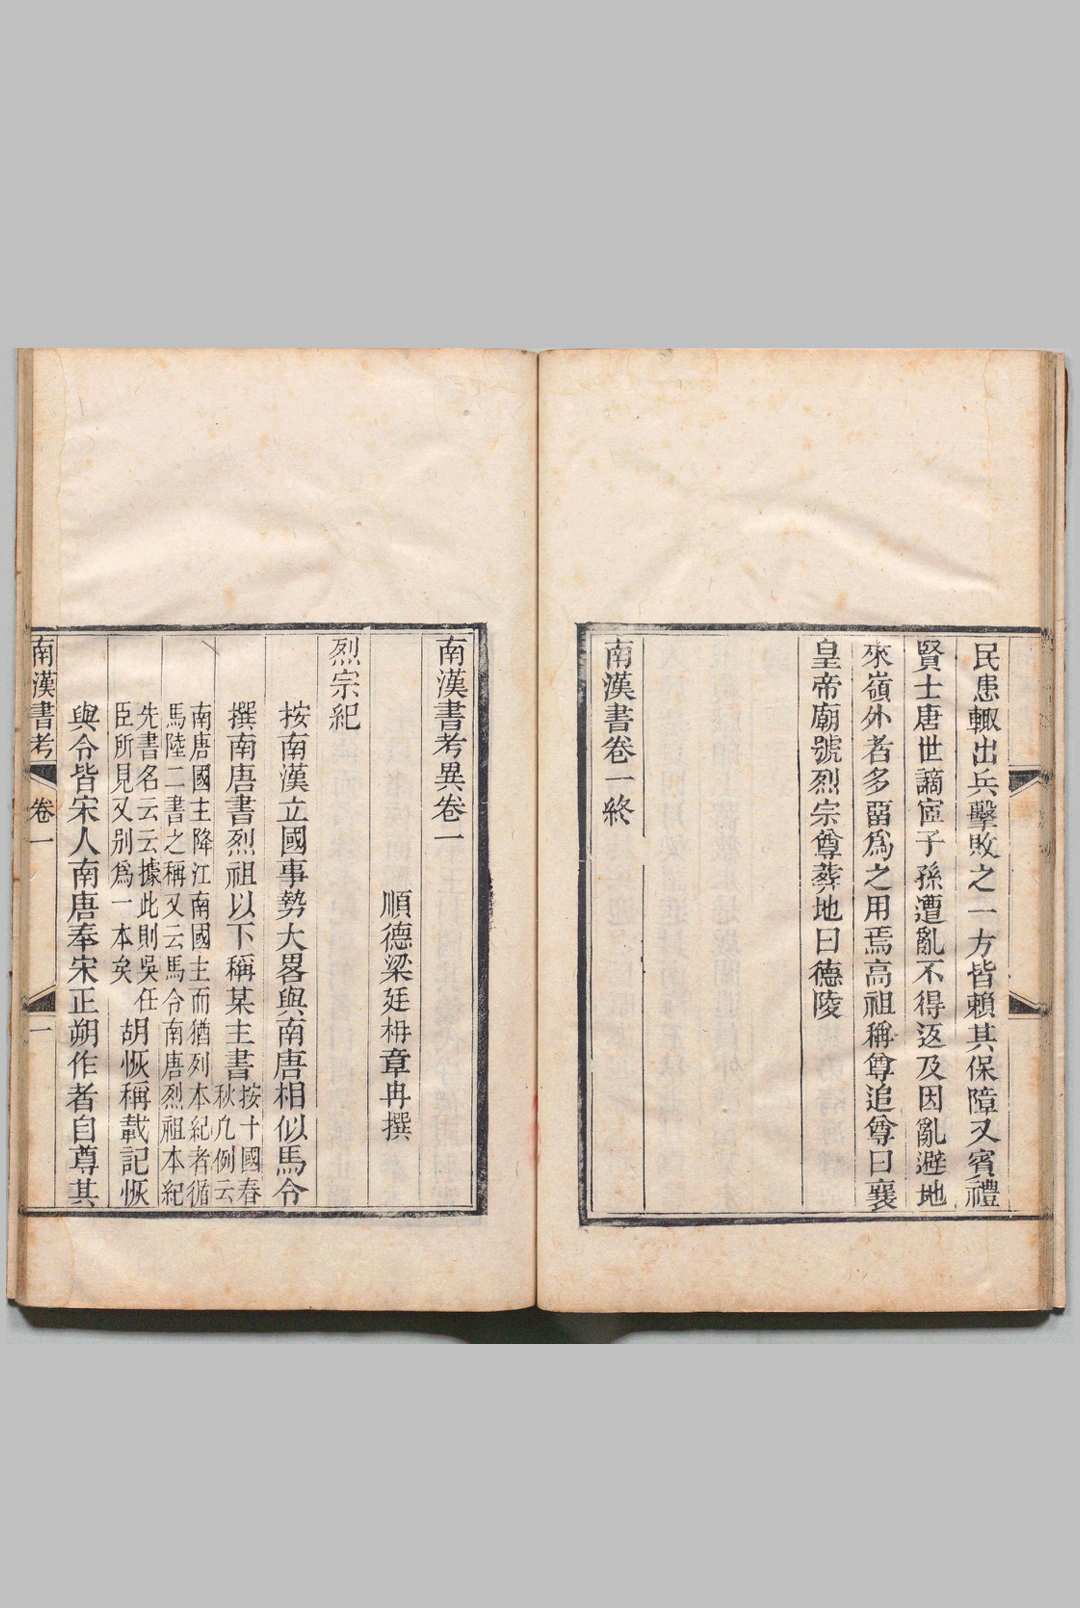 民患輙出兵擊敗之一方皆賴其保障又賓禮
賢士唐世謫宦子孫遭亂不得返及因亂避地
來嶺外者多畱爲之用焉高祖稱尊追尊曰襄
皇帝廟號烈宗尊葬地曰德陵
南漢書卷一終
南漢書考異卷一
順德梁廷枏章冉撰
烈宗紀
按南漢立國事勢大畧與南唐相似馬令
撰南唐書烈祖以下稱某主書按十國春
秋凡例云
南唐國主降江南國主而猶列本紀者循
馬陸二書之稱又云馬令南唐烈祖本紀
先書名云云據此則吳任
臣所見又别爲一本矣
胡恢稱載記恢
與令皆宋人南唐奉宋正朔作者自尊其
南漢書考
卷一
一